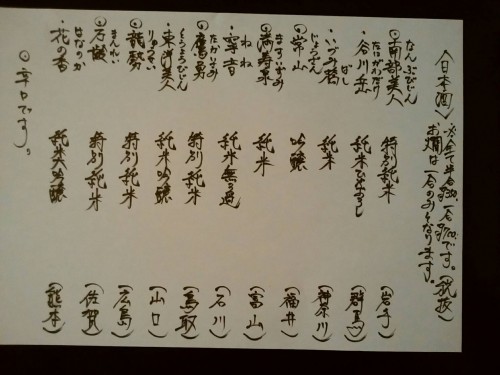 〈日本酒〉※全て半合350、一合700です。(税抜)
お燗は一合のみとなります。
なんぶびじん
◎南部美人 特別純米 (岩手)
たにがわだけ
・谷川岳 純米ひやおろし (群馬)
ばし
・いづみ橋 純米 (神奈川)
じょうざん
◎常山 吟醸 (福井)
ますいずみ
◎満寿泉 純米 (富山)
ねね
・寧音 純米無ろ過 (石川)
たかいさみ
◎鷹勇 特別純米 (鳥取)
とうようびじん
・東洋美人 純米吟醸 (山口)
りゅうせい
◎龍勢 特別純米 (広島)
まんれい
◎万齢 特別純米 (佐賀)
はなのか
・花の香 純米大吟醸 (熊本)
◎辛口です。